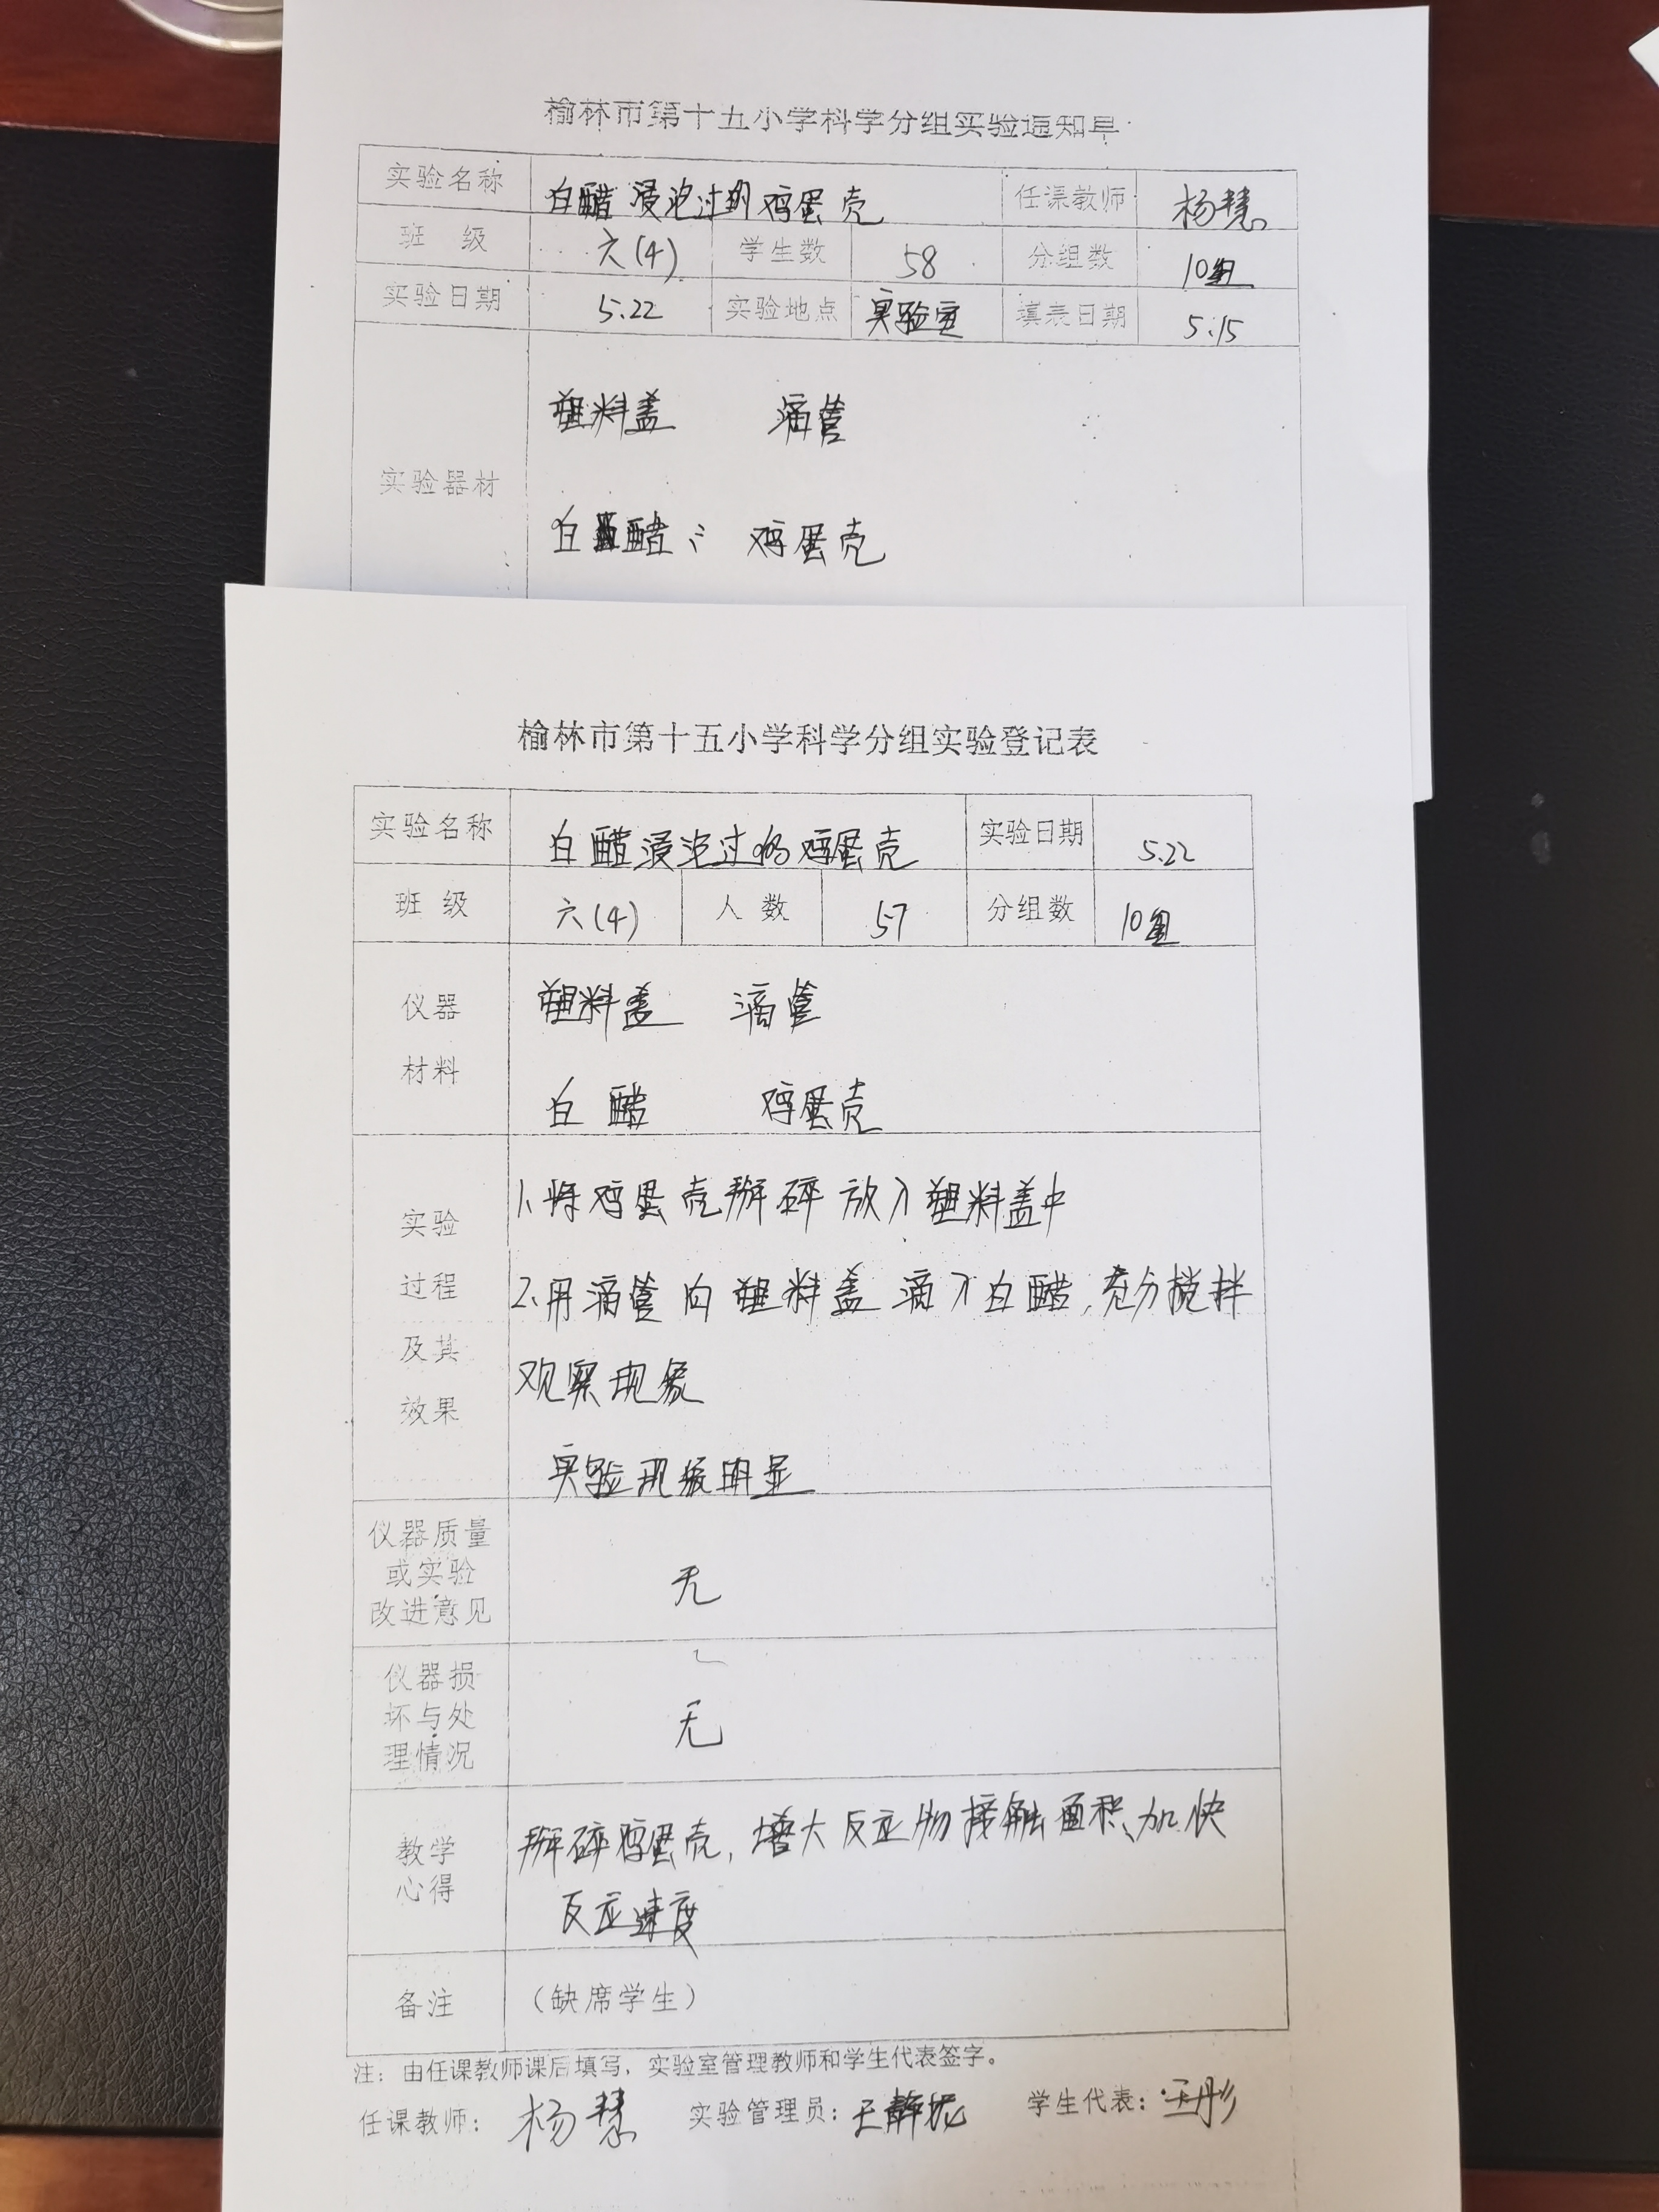 榆林市第十五小学科学分组实验通知单
实验名称 白醋浸泡过的鸡蛋壳 任课教师 杨慧
班 级 六(4) 学生数 58 分组数 10组
实验日期 5.22 实验地点 实验室 填表日期 5.15
塑料盖 滴管
实验器材
白醋 鸡蛋壳
榆林市第十五小学科学分组实验登记表
实验名称 白醋浸泡过的鸡蛋壳 实验日期 5.22
班 级 六(4) 人 数 57 分组数 10组
仪器 塑料盖 滴管
材料
白醋 鸡蛋壳
1、将鸡蛋壳掰碎放入塑料盖中
实验
过程 2、用滴管向塑料盖滴入白醋,充分搅拌
及其 观察现象
效果
实验现象明显
仪器质量
或实验 无
改进意见
仪器损
坏与处 无
理情况
教学 掰碎鸡蛋壳,增大反应物接触面积、加快
心得 反应速度
备注 (缺席学生)
注:由任课教师课后填写,实验室管理教师和学生代表签字。
任课教师: 杨慧 实验管理员: 学生代表: 王彤